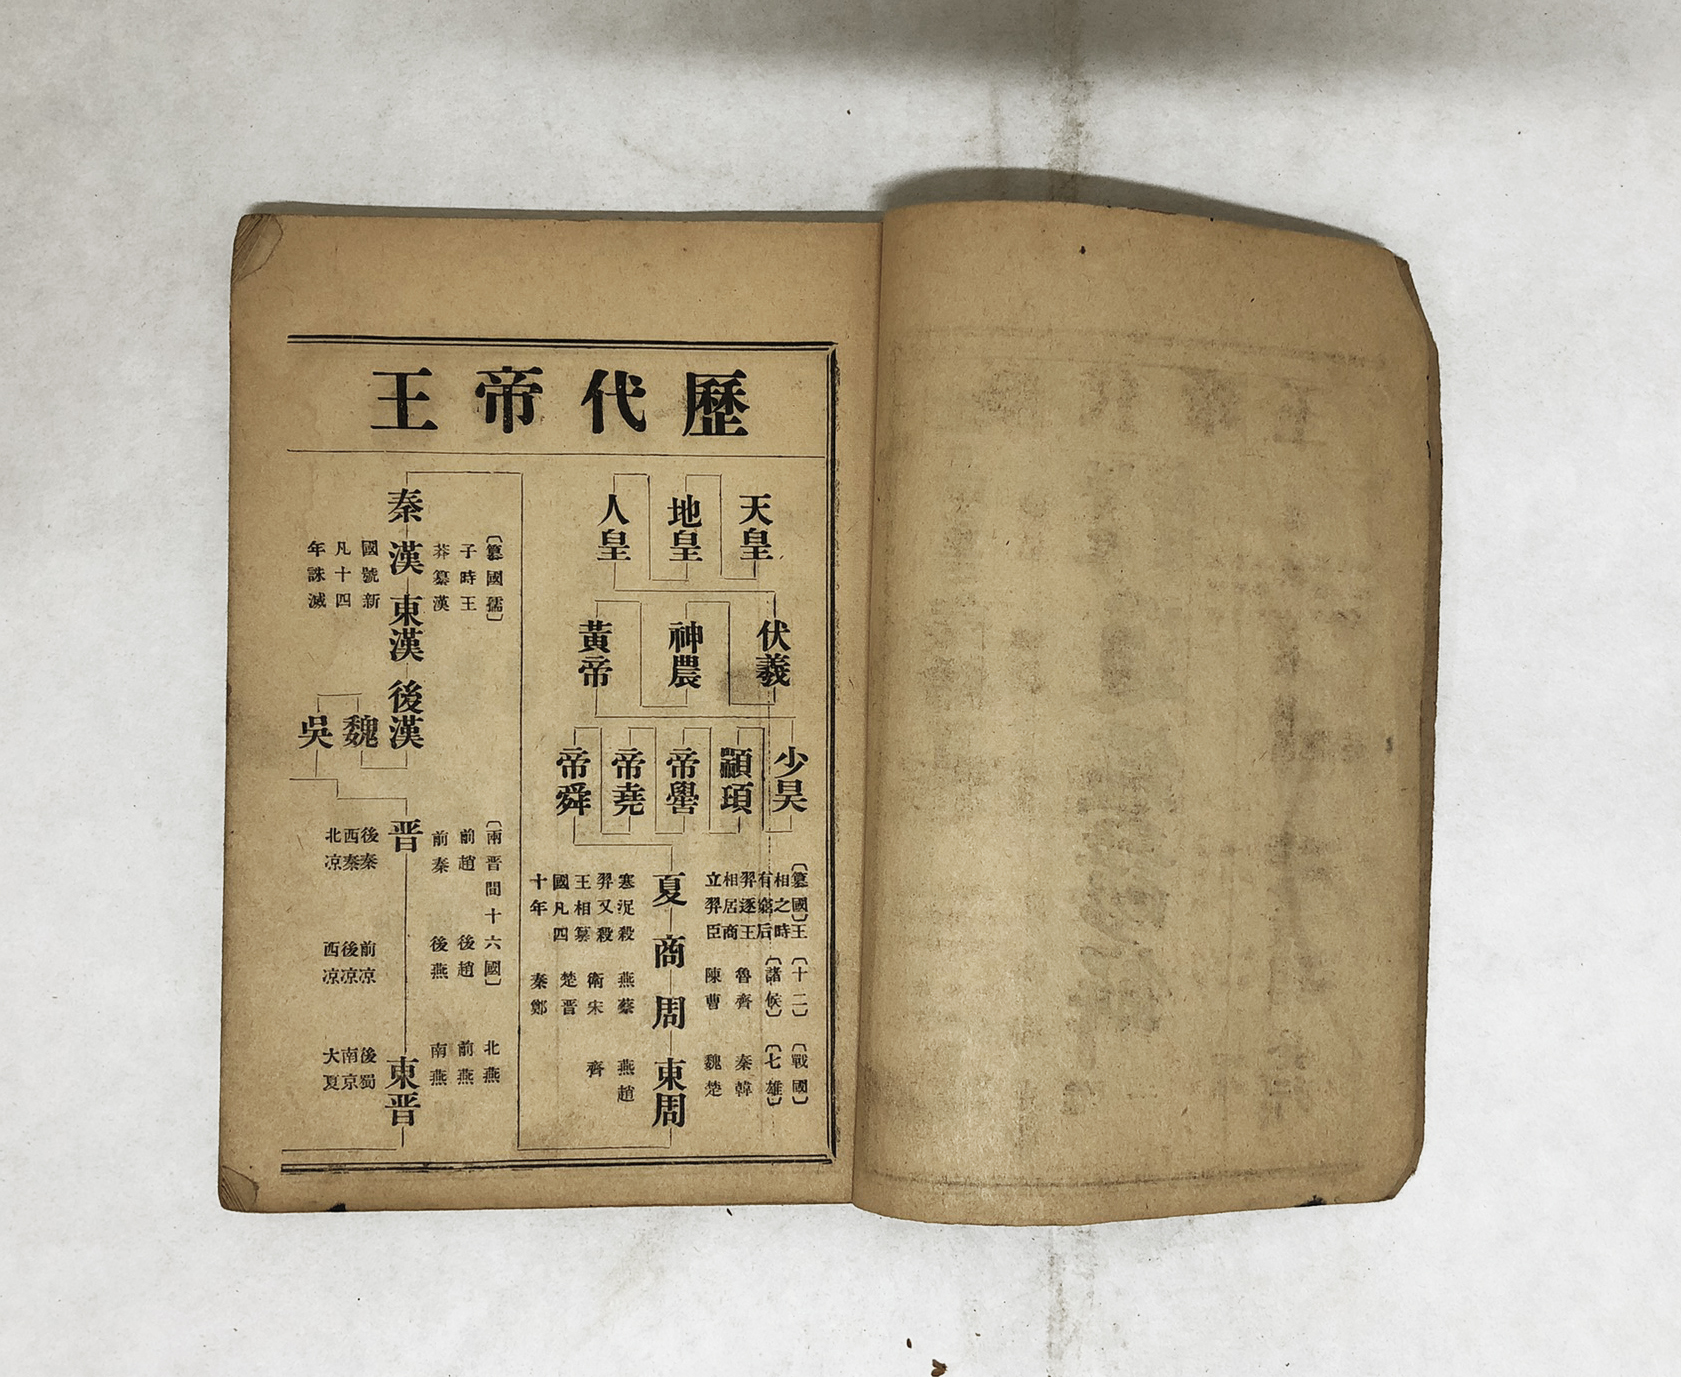 歷代帝王
天皇
地皇
人皇
伏羲
神農
黃帝
少昊
顓頊
帝嚳
帝堯
帝舜
〔篡國〕王
相之時
有窮后
羿逐王
相居商
立羿臣
夏
寒浞殺
羿又殺
王相篡
國凡四
十年
商
〔十二
諸侯〕
魯齊
陳曹
周
燕蔡
衛宋
楚晋
秦鄭
〔戰國〕
〔七雄〕
秦韓
魏楚
東周
燕趙
齊
秦
〔篡國孺〕
子時王
莽纂漢
漢
國號新
凡十四
年誅滅
東漢
後漢
魏
吳
晋
〔兩晋間十六國〕
前趙
前秦
後秦
西秦
北凉
後趙
後燕
前凉
後凉
西凉
北燕
前燕
南燕
東晋
後蜀
南京
大夏